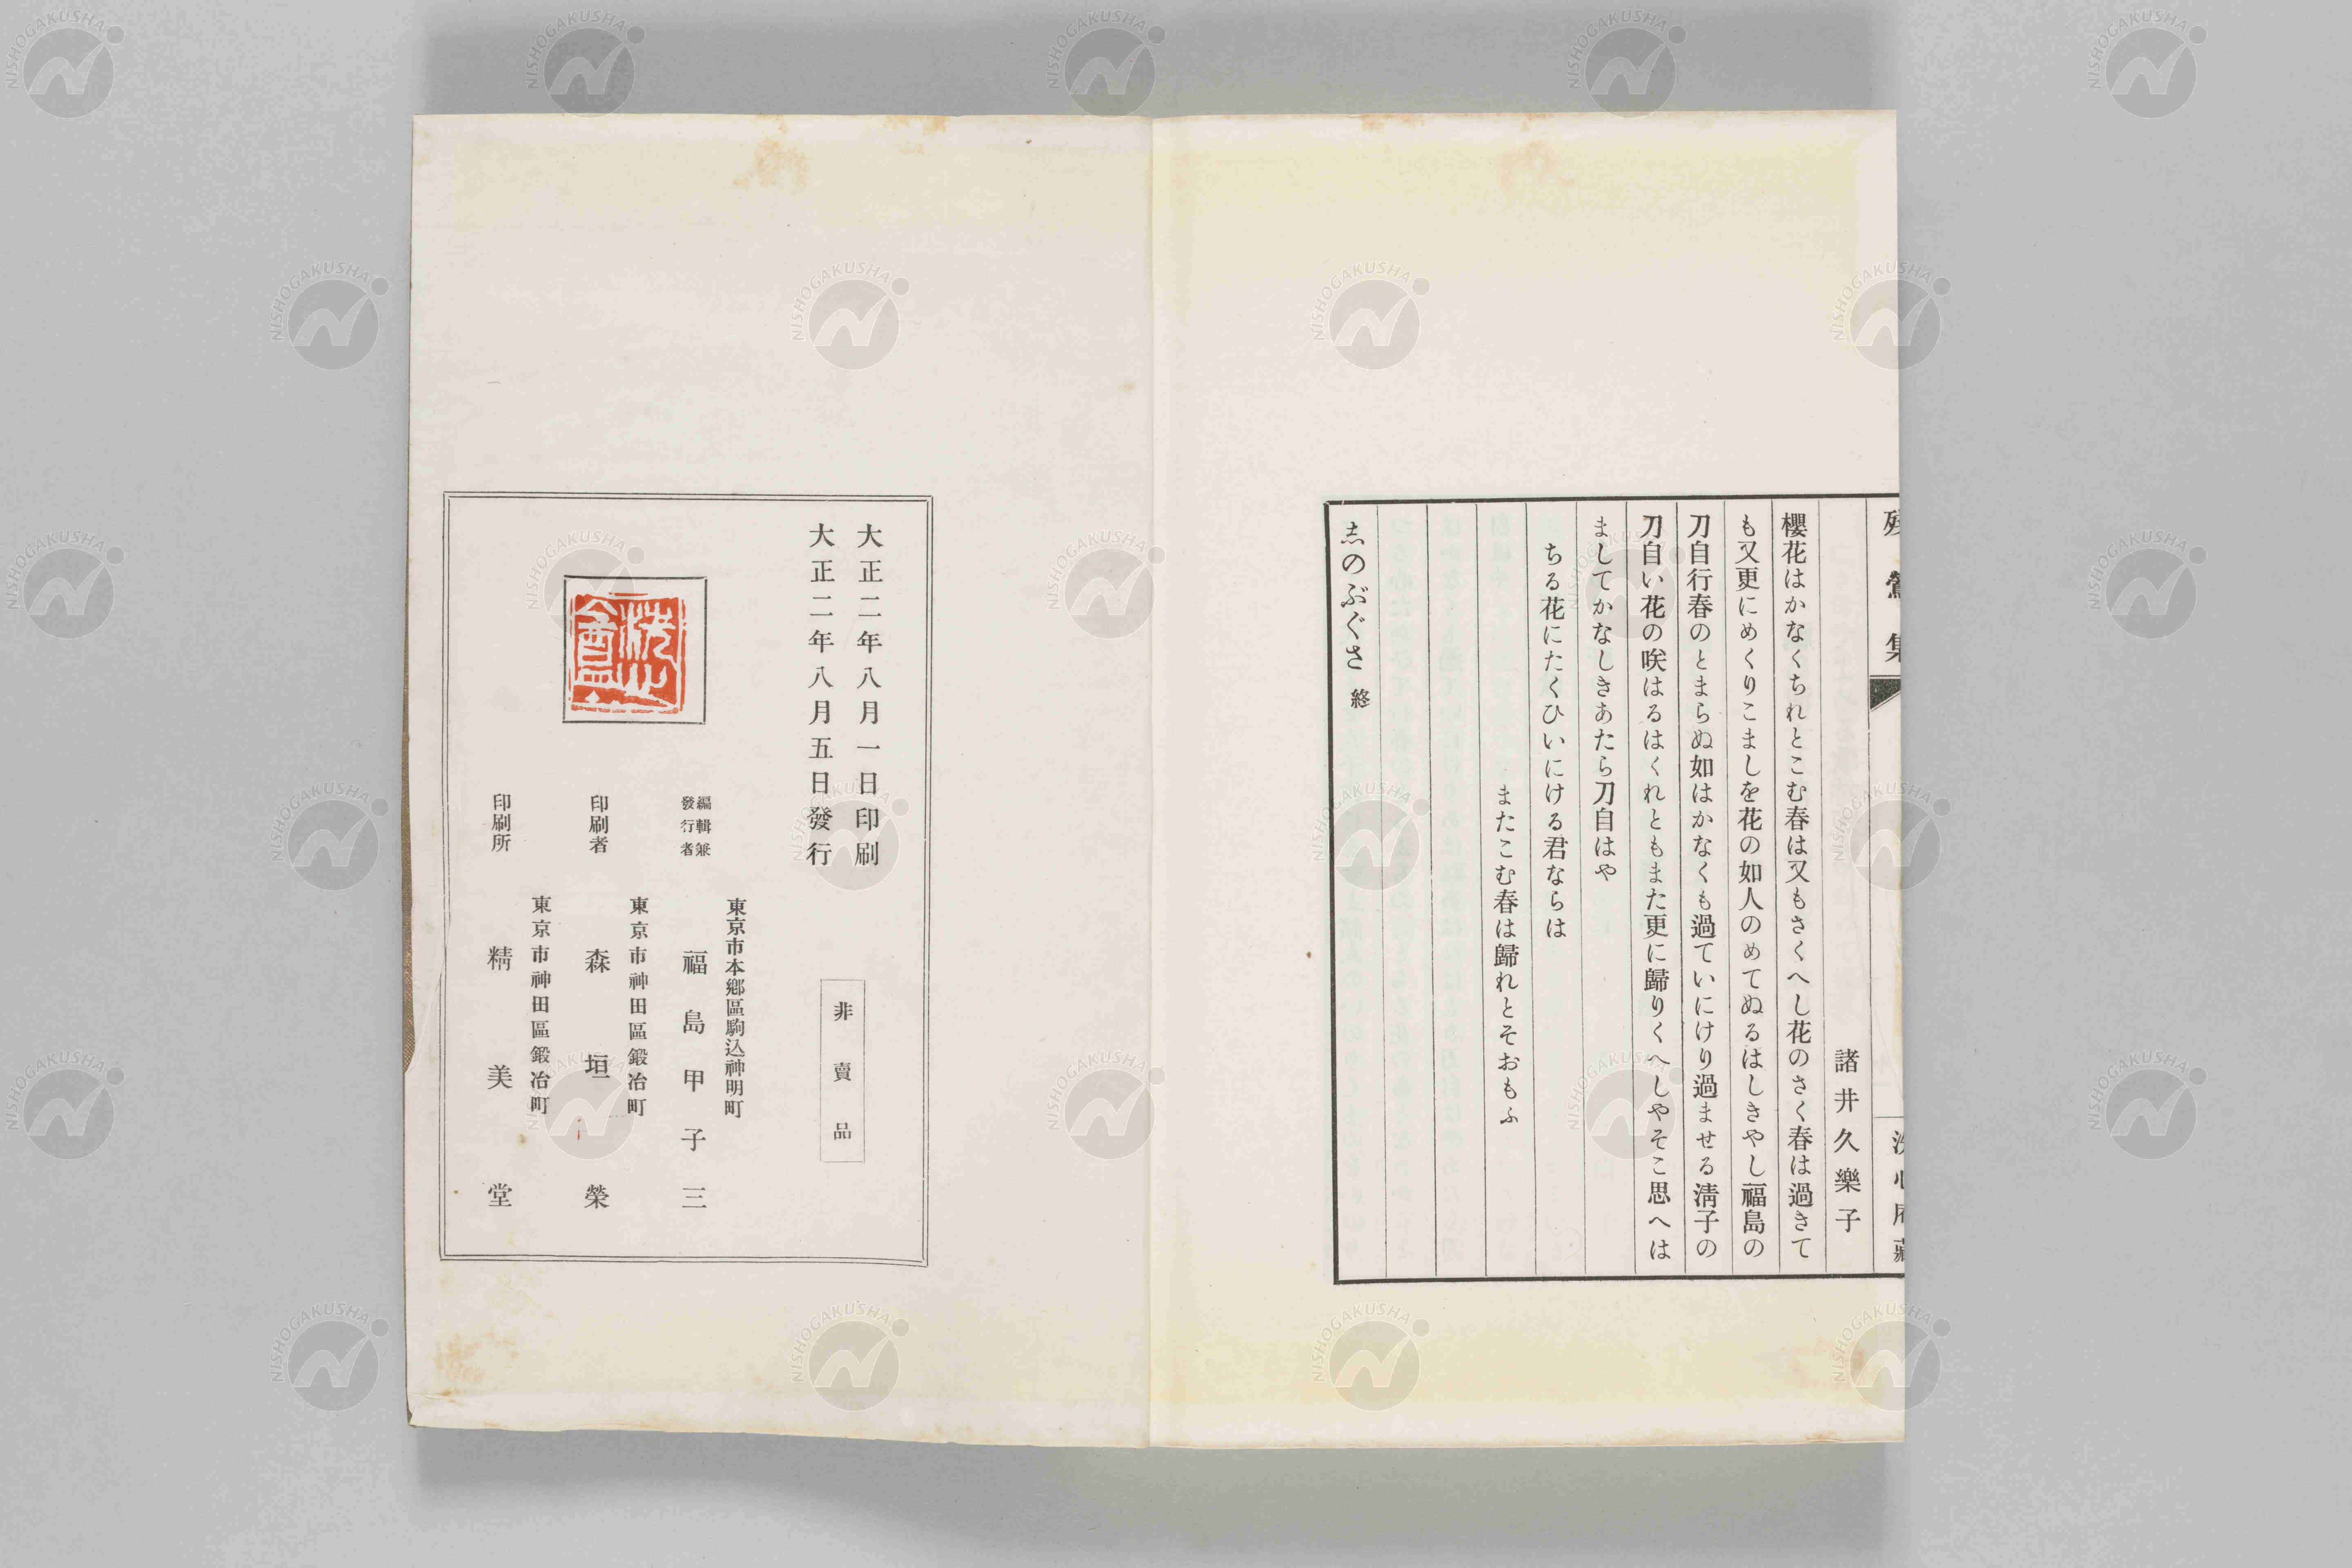 殘鶯集
洗心庵藏
諸井久樂子
櫻花はかなくちれとこむ春は又もさくへし花のさく春は過きて
も又更にめくりこましを花の如人のめてぬるはしきやし福島の
刀自行春のとまらぬ如はかなくも過ていにけり過ませる淸子の
刀自い花の咲はるはくれともまた更に歸りくへしやそこ思へは
ましてかなしきあたら刀自はや
ちる花にたくひいにける君ならは
またこむ春は歸れとそおもふ
志のぶぐさ 終
大正二年八月一日印刷
大正二年八月五日發行
非賣品
東京市本鄕區駒込神明町
編輯兼發行者 福島甲子三
東京市神田區鍛冶町
印刷者 森垣榮
東京市神田區鍛冶町
印刷所 精美堂
NISHOGAKUSHA